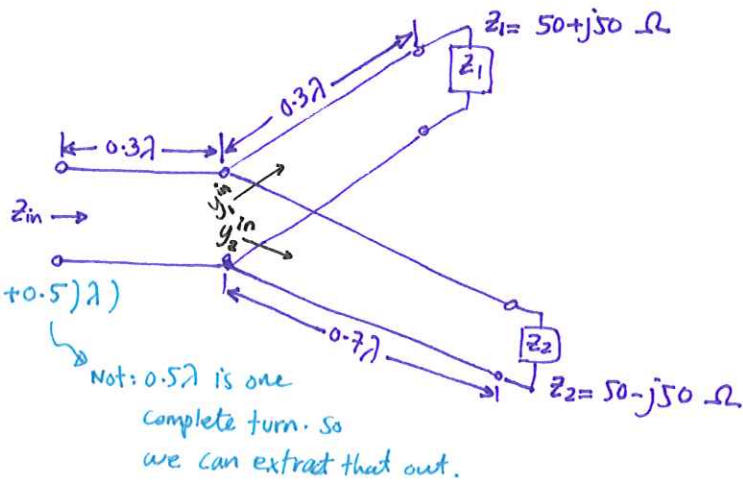 Z1= 50+j50 Ω
Z1
0.3λ
0.3λ
y1^in
Zin →
y2^in
+0.5)λ)
0.7λ
Z2
Z2= 50-j50 Ω
Not: 0.5λ is one
complete turn. So
we can extract that out.